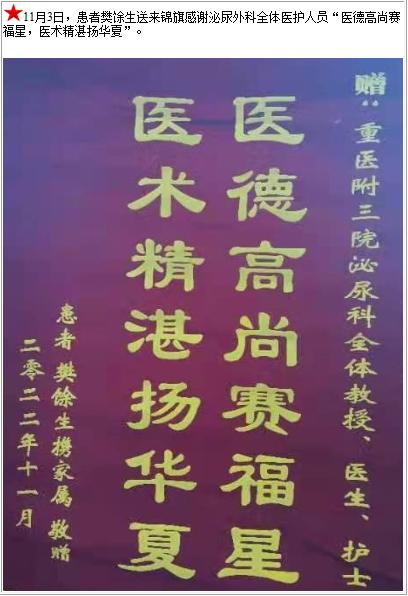 11月3日，患者樊馀生送来锦旗感谢泌尿外科全体医护人员“医德高尚赛
福星，医术精湛扬华夏”。
赠：重医附三院泌尿科全体教授、医生、护士
医德高尚赛福星
医术精湛扬华夏
患者 樊馀生携家属 敬赠
二零二二年十一月